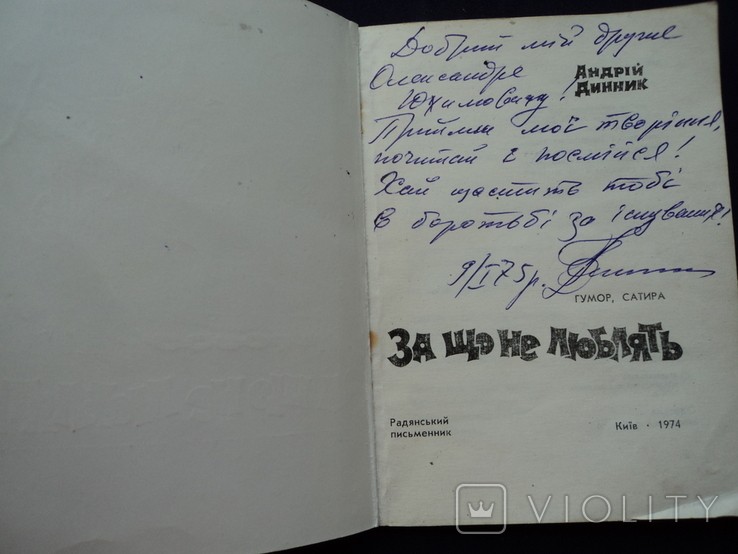 Добрий мій друже
Олександре
Юхимовичу!
Андрій
Динник
Прийми мої творіння,
почитай і посмійся!
Хай щастить тобі
в боротьбі за існування!
9/I 75 р.
ГУМОР, САТИРА
ЗА ЩО НЕ ЛЮБЛЯТЬ
Радянський
письменник
Київ · 1974
VIOLITY